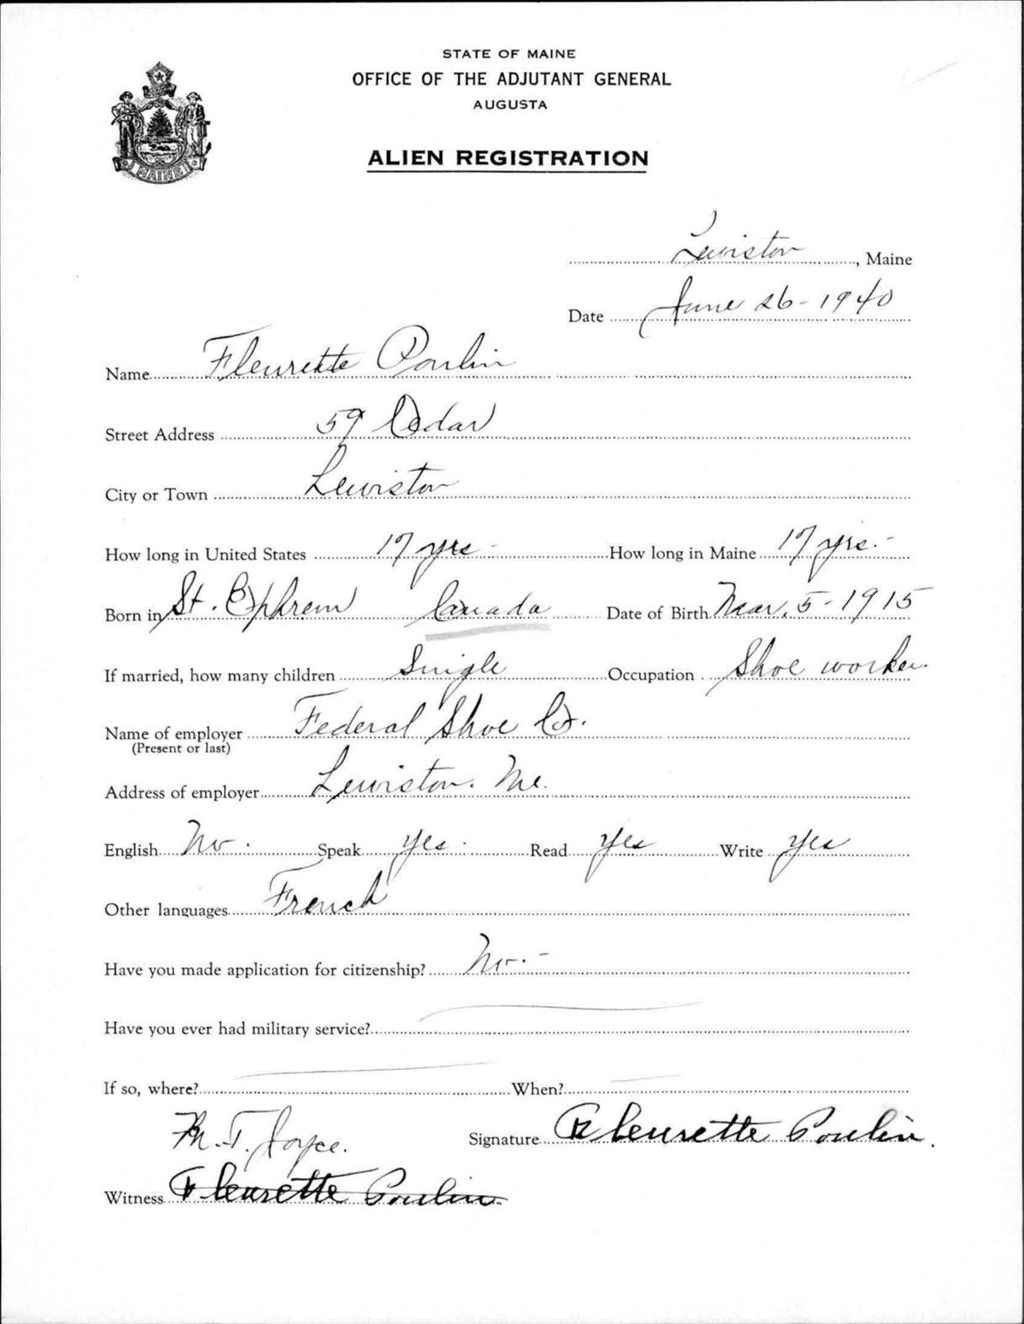 STATE OF MAINE
OFFICE OF THE ADJUTANT GENERAL
AUGUSTA
MAINE
ALIEN REGISTRATION
Lewiston, Maine
Date June 26-1940
Name Fleurette Poulin
Street Address 59 Cedar
City or Town Lewiston
How long in United States 17 yrs - How long in Maine 17 yrs. -
Born in St. Ephrem Canada Date of Birth Mar. 5-1915
If married, how many children Single Occupation Shoe worker
Name of employer Federal Shoe Co.
(Present or last)
Address of employer Lewiston. Me.
English No. Speak yes. Read Yes Write Yes
Other languages French
Have you made application for citizenship? No. -
Have you ever had military service?
If so, where? When?
M. T. Joyce.
Signature Fleurette Poulin.
Witness Fleurette Poulin